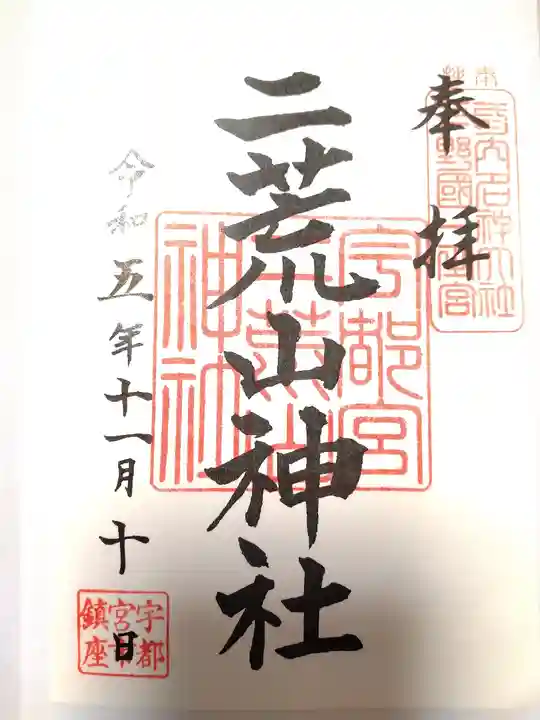 奉拝
式内名神大社
下野國一之宮
二荒山神社
宇都宮
二荒山
神社
令和五年十一月十日
宇都
宮市
鎮座